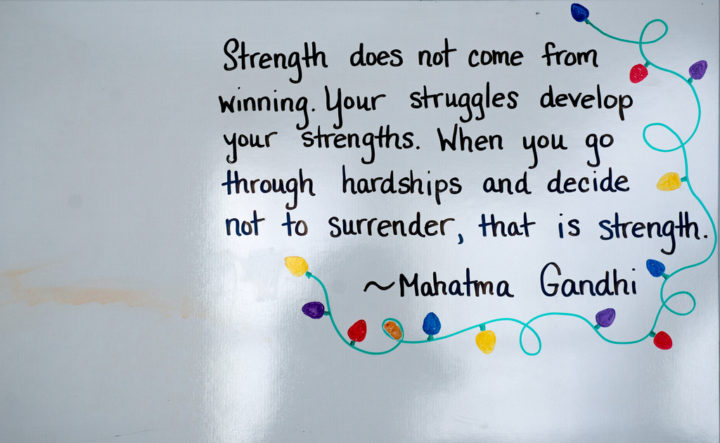 Strength does not come from
winning. Your struggles develop
your strengths. When you go
through hardships and decide
not to surrender, that is strength.
~Mahatma Gandhi